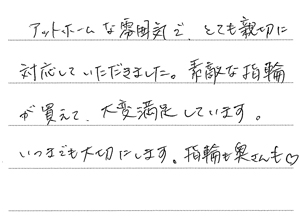 アットホームな雰囲気で、とても親切に
対応していただきました。素敵な指輪
が買えて、大変満足しています。
いつまでも大切にします。指輪も奥さんも♡